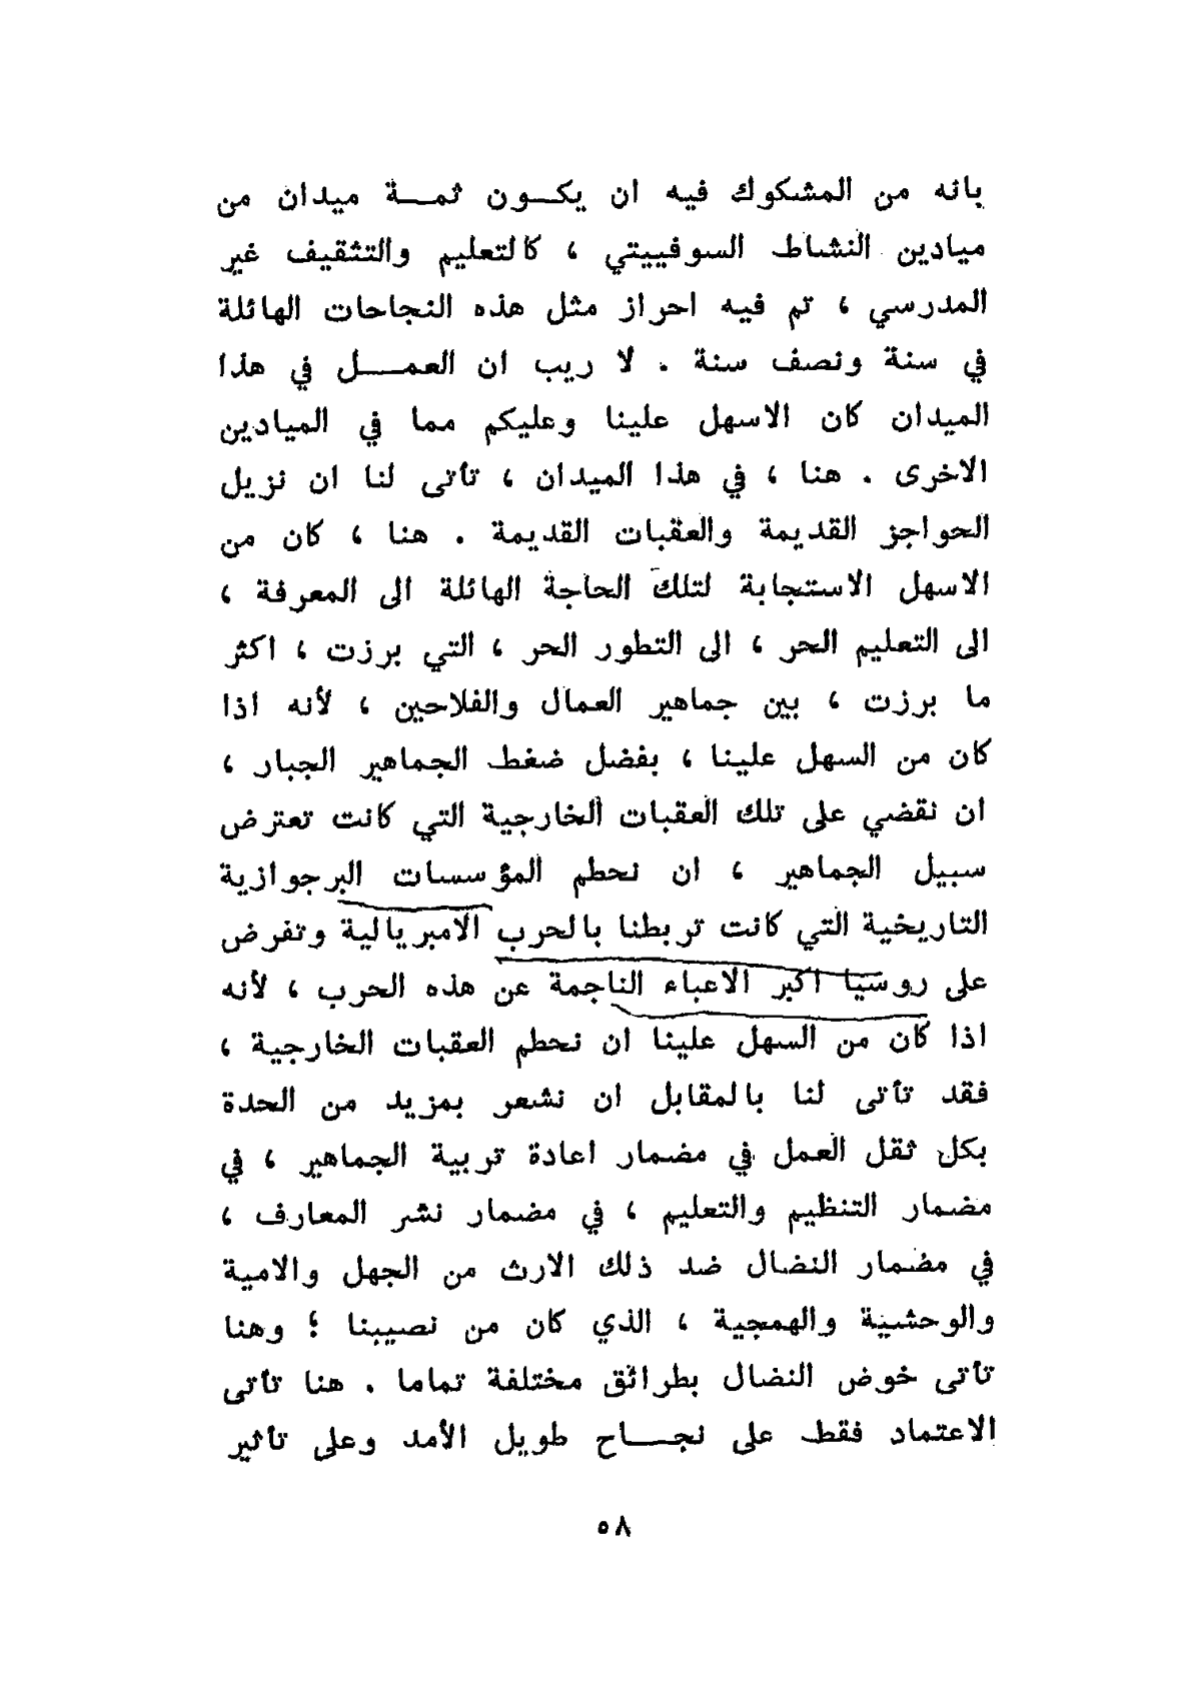 بانه من المشكوك فيه ان يكـــون ثمـــة ميدان من
ميادين النشاط السوفييتي ، كالتعليم والتثقيف غير
المدرسي ، تم فيه احراز مثل هذه النجاحات الهائلة
في سنة ونصف سنة . لا ريب ان العمـــل في هذا
الميدان كان الاسهل علينا وعليكم مما في الميادين
الاخرى . هنا ، في هذا الميدان ، تأتى لنا ان نزيل
الحواجز القديمة والعقبات القديمة . هنا ، كان من
الاسهل الاستجابة لتلك الحاجة الهائلة الى المعرفة ،
الى التعليم الحر ، الى التطور الحر ، التي برزت ، اكثر
ما برزت ، بين جماهير العمال والفلاحين ، لأنه اذا
كان من السهل علينا ، بفضل ضغط الجماهير الجبار ،
ان نقضي على تلك العقبات الخارجية التي كانت تعترض
سبيل الجماهير ، ان نحطم المؤسسات البرجوازية
التاريخية التي كانت تربطنا بالحرب الامبريالية وتفرض
على روسيا اكبر الاعباء الناجمة عن هذه الحرب ، لأنه
اذا كان من السهل علينا ان نحطم العقبات الخارجية ،
فقد تأتى لنا بالمقابل ان نشعر بمزيد من الحدة
بكل ثقل العمل في مضمار اعادة تربية الجماهير ، في
مضمار التنظيم والتعليم ، في مضمار نشر المعارف ،
في مضمار النضال ضد ذلك الارث من الجهل والامية
والوحشية والهمجية ، الذي كان من نصيبنا ؛ وهنا
تأتى خوض النضال بطرائق مختلفة تماما . هنا تأتى
الاعتماد فقط على نجـــاح طويل الأمد وعلى تأثير
٥٨